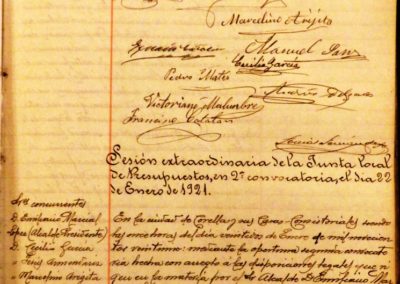 Marcelino Arigita
Manuel Sanz
Cecilio García
Pedro Mateo
Andrés Delgado
Victoriano Malumbre
Francisco Catalan
Sesión extraordinaria de la Junta local
de Presupuestos, en 2ª convocatoria, el dia 22
de Enero de 1921.
Sres. concurrentes
D. Bonifacio Marcial
(Alcalde Presidente)
" Cecilio García
" Marcelino Arigita
En la ciudad de Corella y sus Casas Consistoriales siendo
las once horas del dia veintidos de Enero de mil novecien
tos veintiuno: mediante la oportuna segunda convocato
ria hecha con arreglo á las disposiciones legales que ri
gen en la materia por el Sr. Alcalde D. Bonifacio Mar